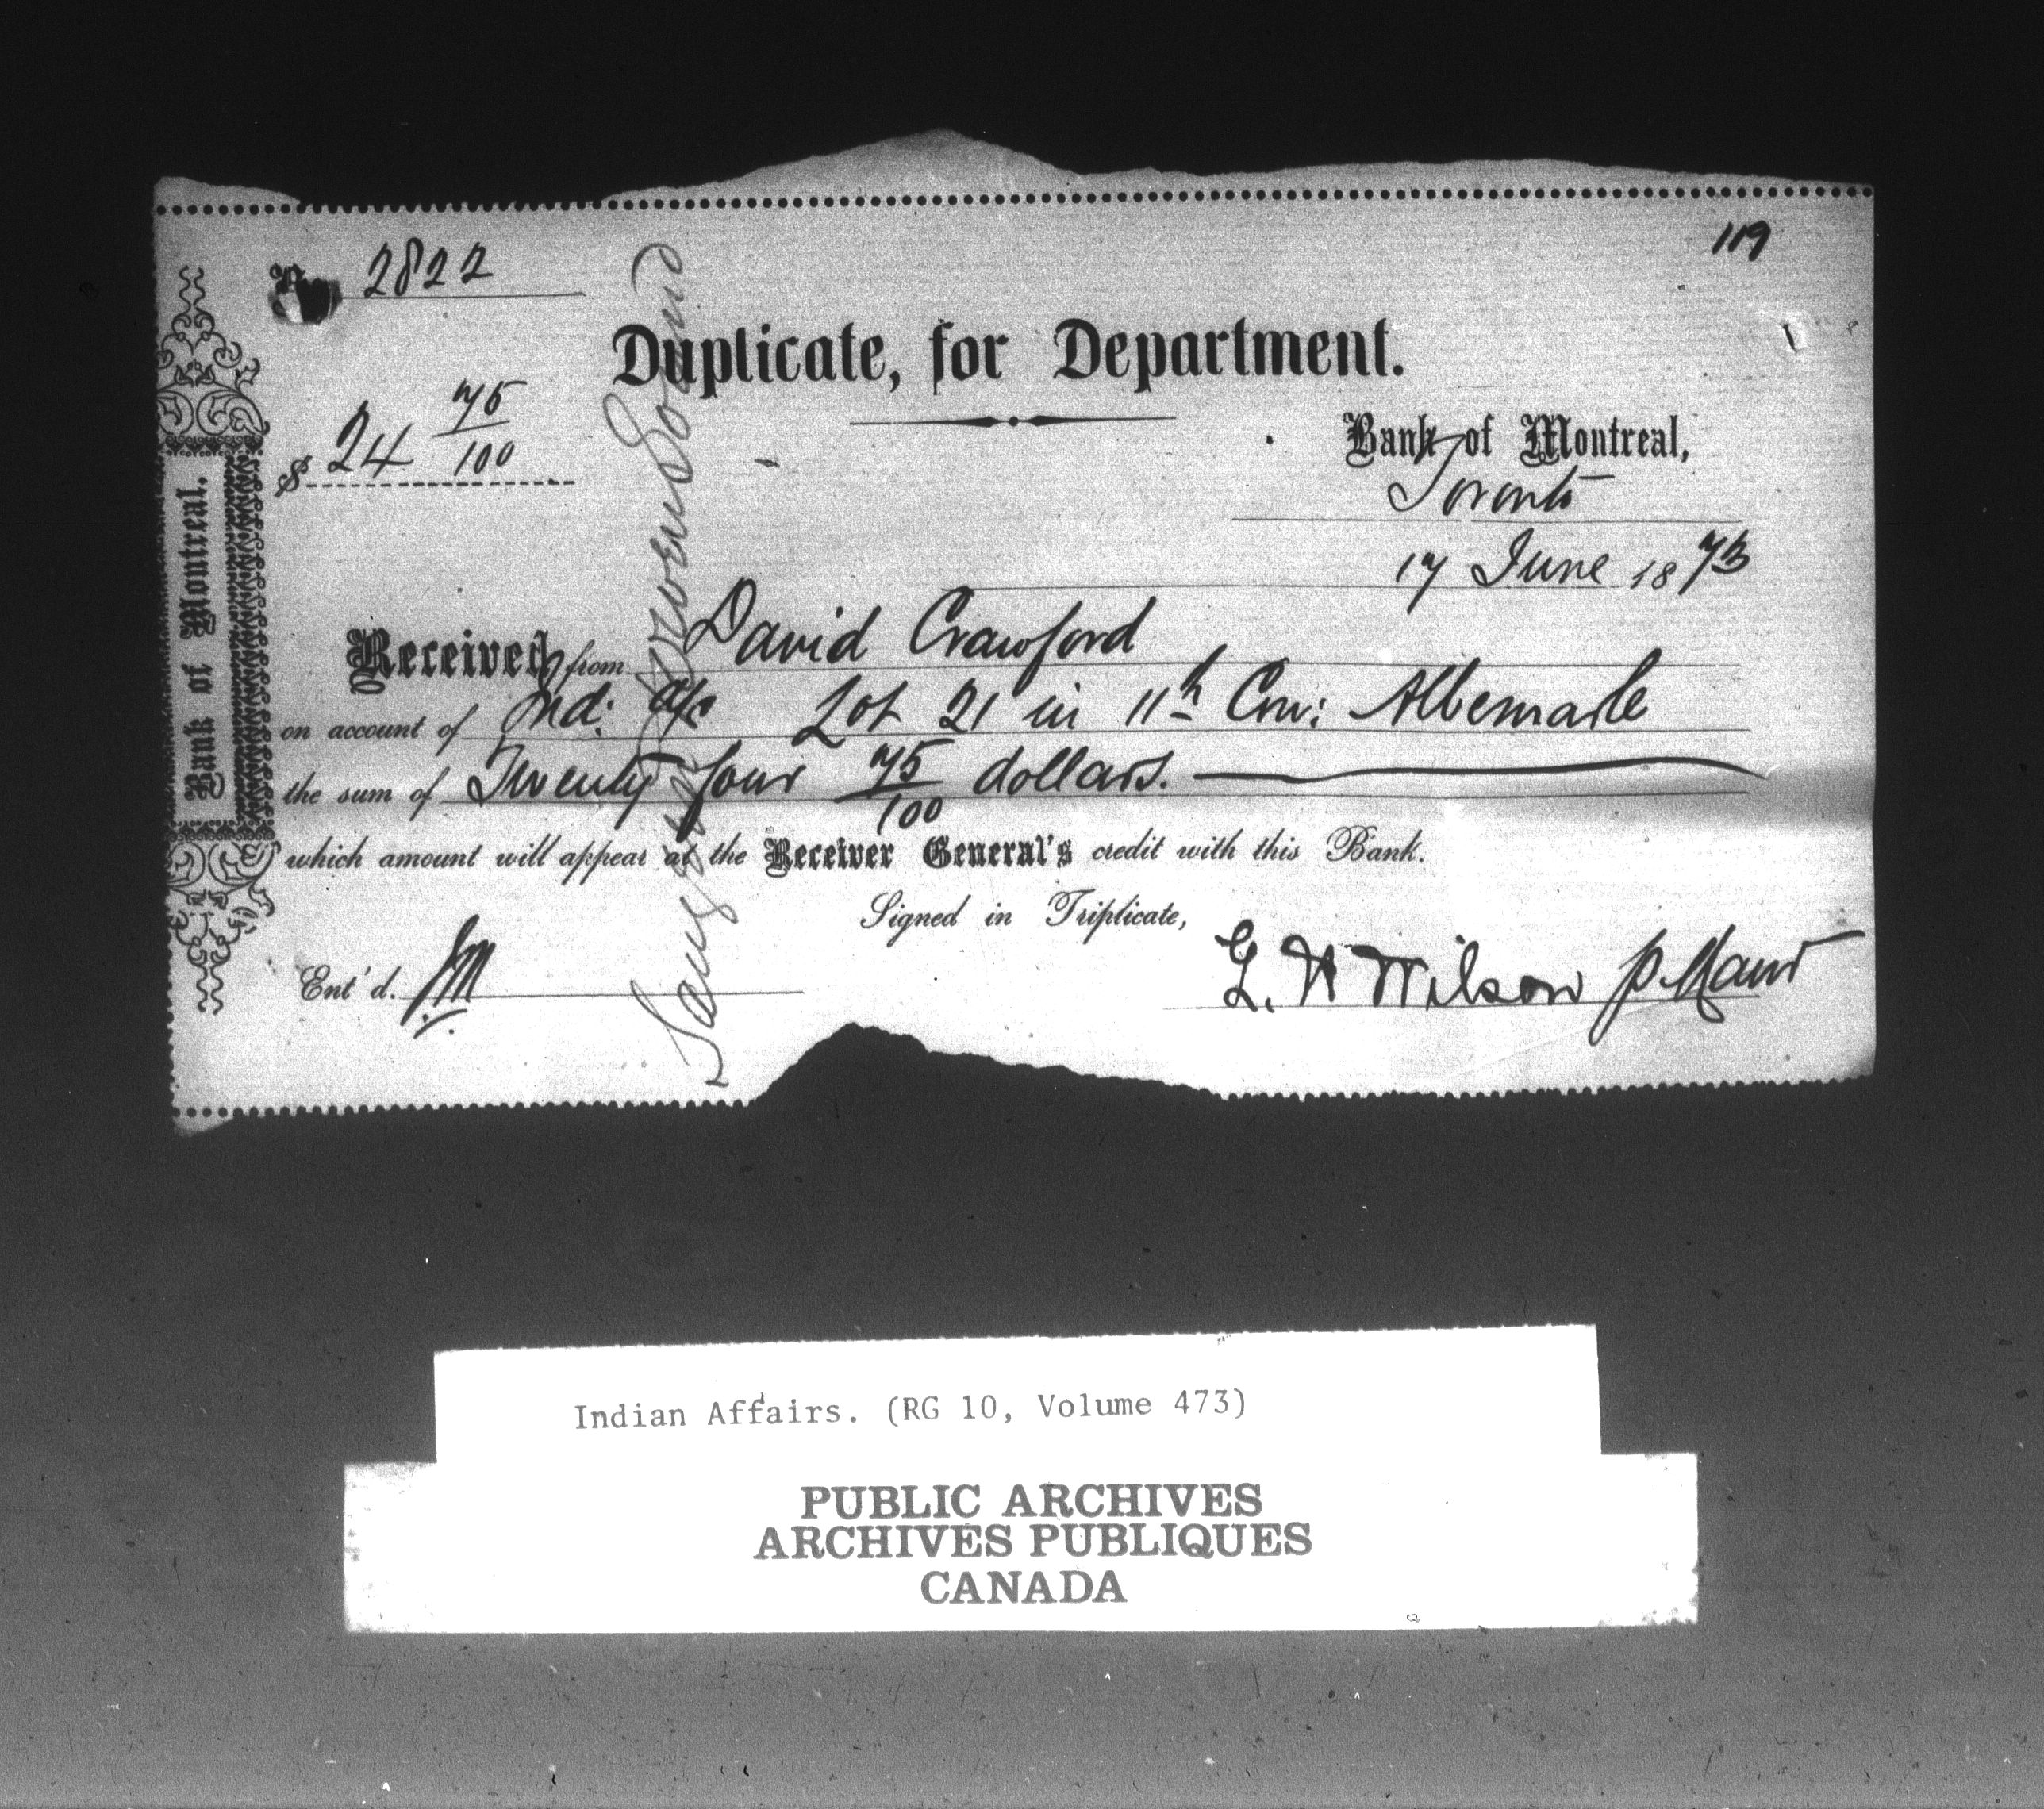 119
No 2822
Duplicate, for Department.
$ 24 75/100
Bank of Montreal,
Toronto
17 June 1873
Received from David Crawford
on account of Ind: a/c Lot 21 in 11th Con: Albemarle
the sum of Twenty four 75/100 dollars.
which amount will appear at the Receiver General's credit with this Bank.
Signed in Triplicate,
Ent'd. JM
G. W Wilson p Man
Saugeen Owen Sound
Bank of Montreal.
Indian Affairs. (RG 10, Volume 473)
PUBLIC ARCHIVES
ARCHIVES PUBLIQUES
CANADA